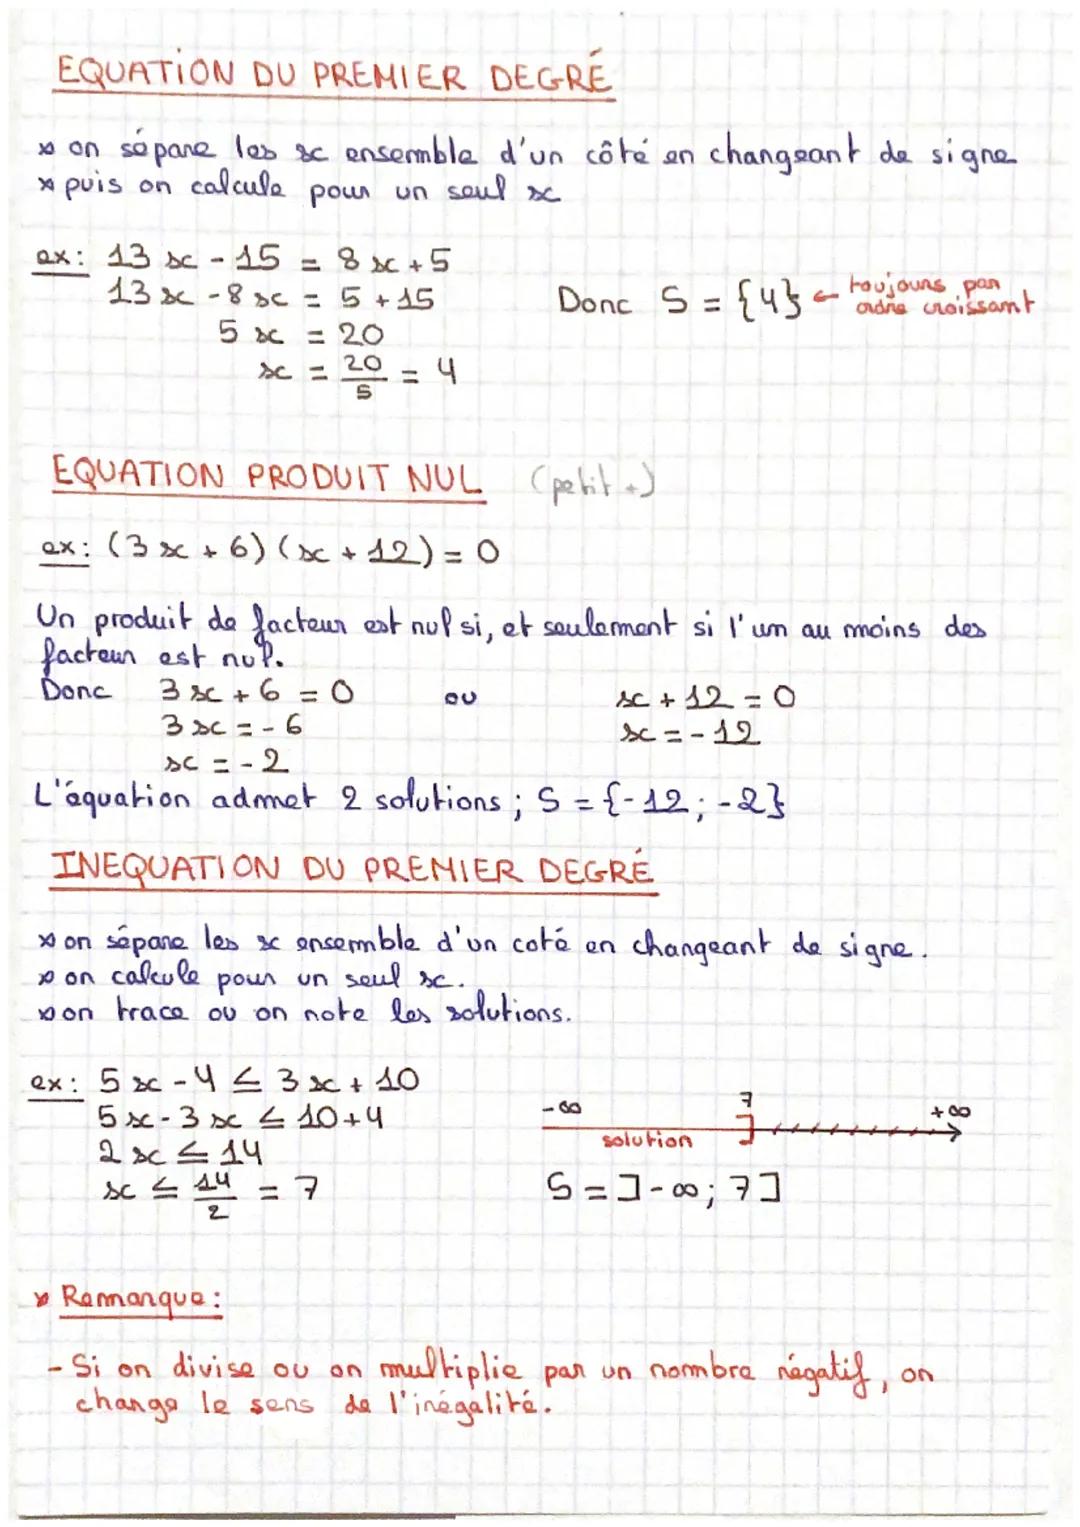 EQUATION DU PREMIER DEGRÉ
x on sépare les x ensemble d'un côté en changeant de signe
x puis on calcule pour un seul x
ex: 13x - 15 = 8x + 5
13x - 8x = 5 + 15
5x = 20
x = 20/5 = 4
Donc S = {4} ← toujours par
ordre croissant
EQUATION PRODUIT NUL (petit +)
ex: (3x + 6)(x + 12) = 0
Un produit de facteur est nul si, et seulement si l'um au moins des
facteur est nul.
Donc 3x + 6 = 0 ou x + 12 = 0
3x = -6 x = -12
x = -2
L'équation admet 2 solutions ; S = {-12; -2}
INEQUATION DU PREMIER DEGRÉ
x on sépare les x ensemble d'un coté en changeant de signe.
x on calcule pour un seul x.
x on trace ou on note les solutions.
ex: 5x - 4 ≤ 3x + 10
5x - 3x ≤ 10 + 4
2x ≤ 14
x ≤ 14/2 = 7
-∞ 7 +∞
solution ]
S = ]-∞; 7]
x Remarque:
- Si on divise ou on multiplie par un nombre négatif, on
change le sens de l'inégalité.